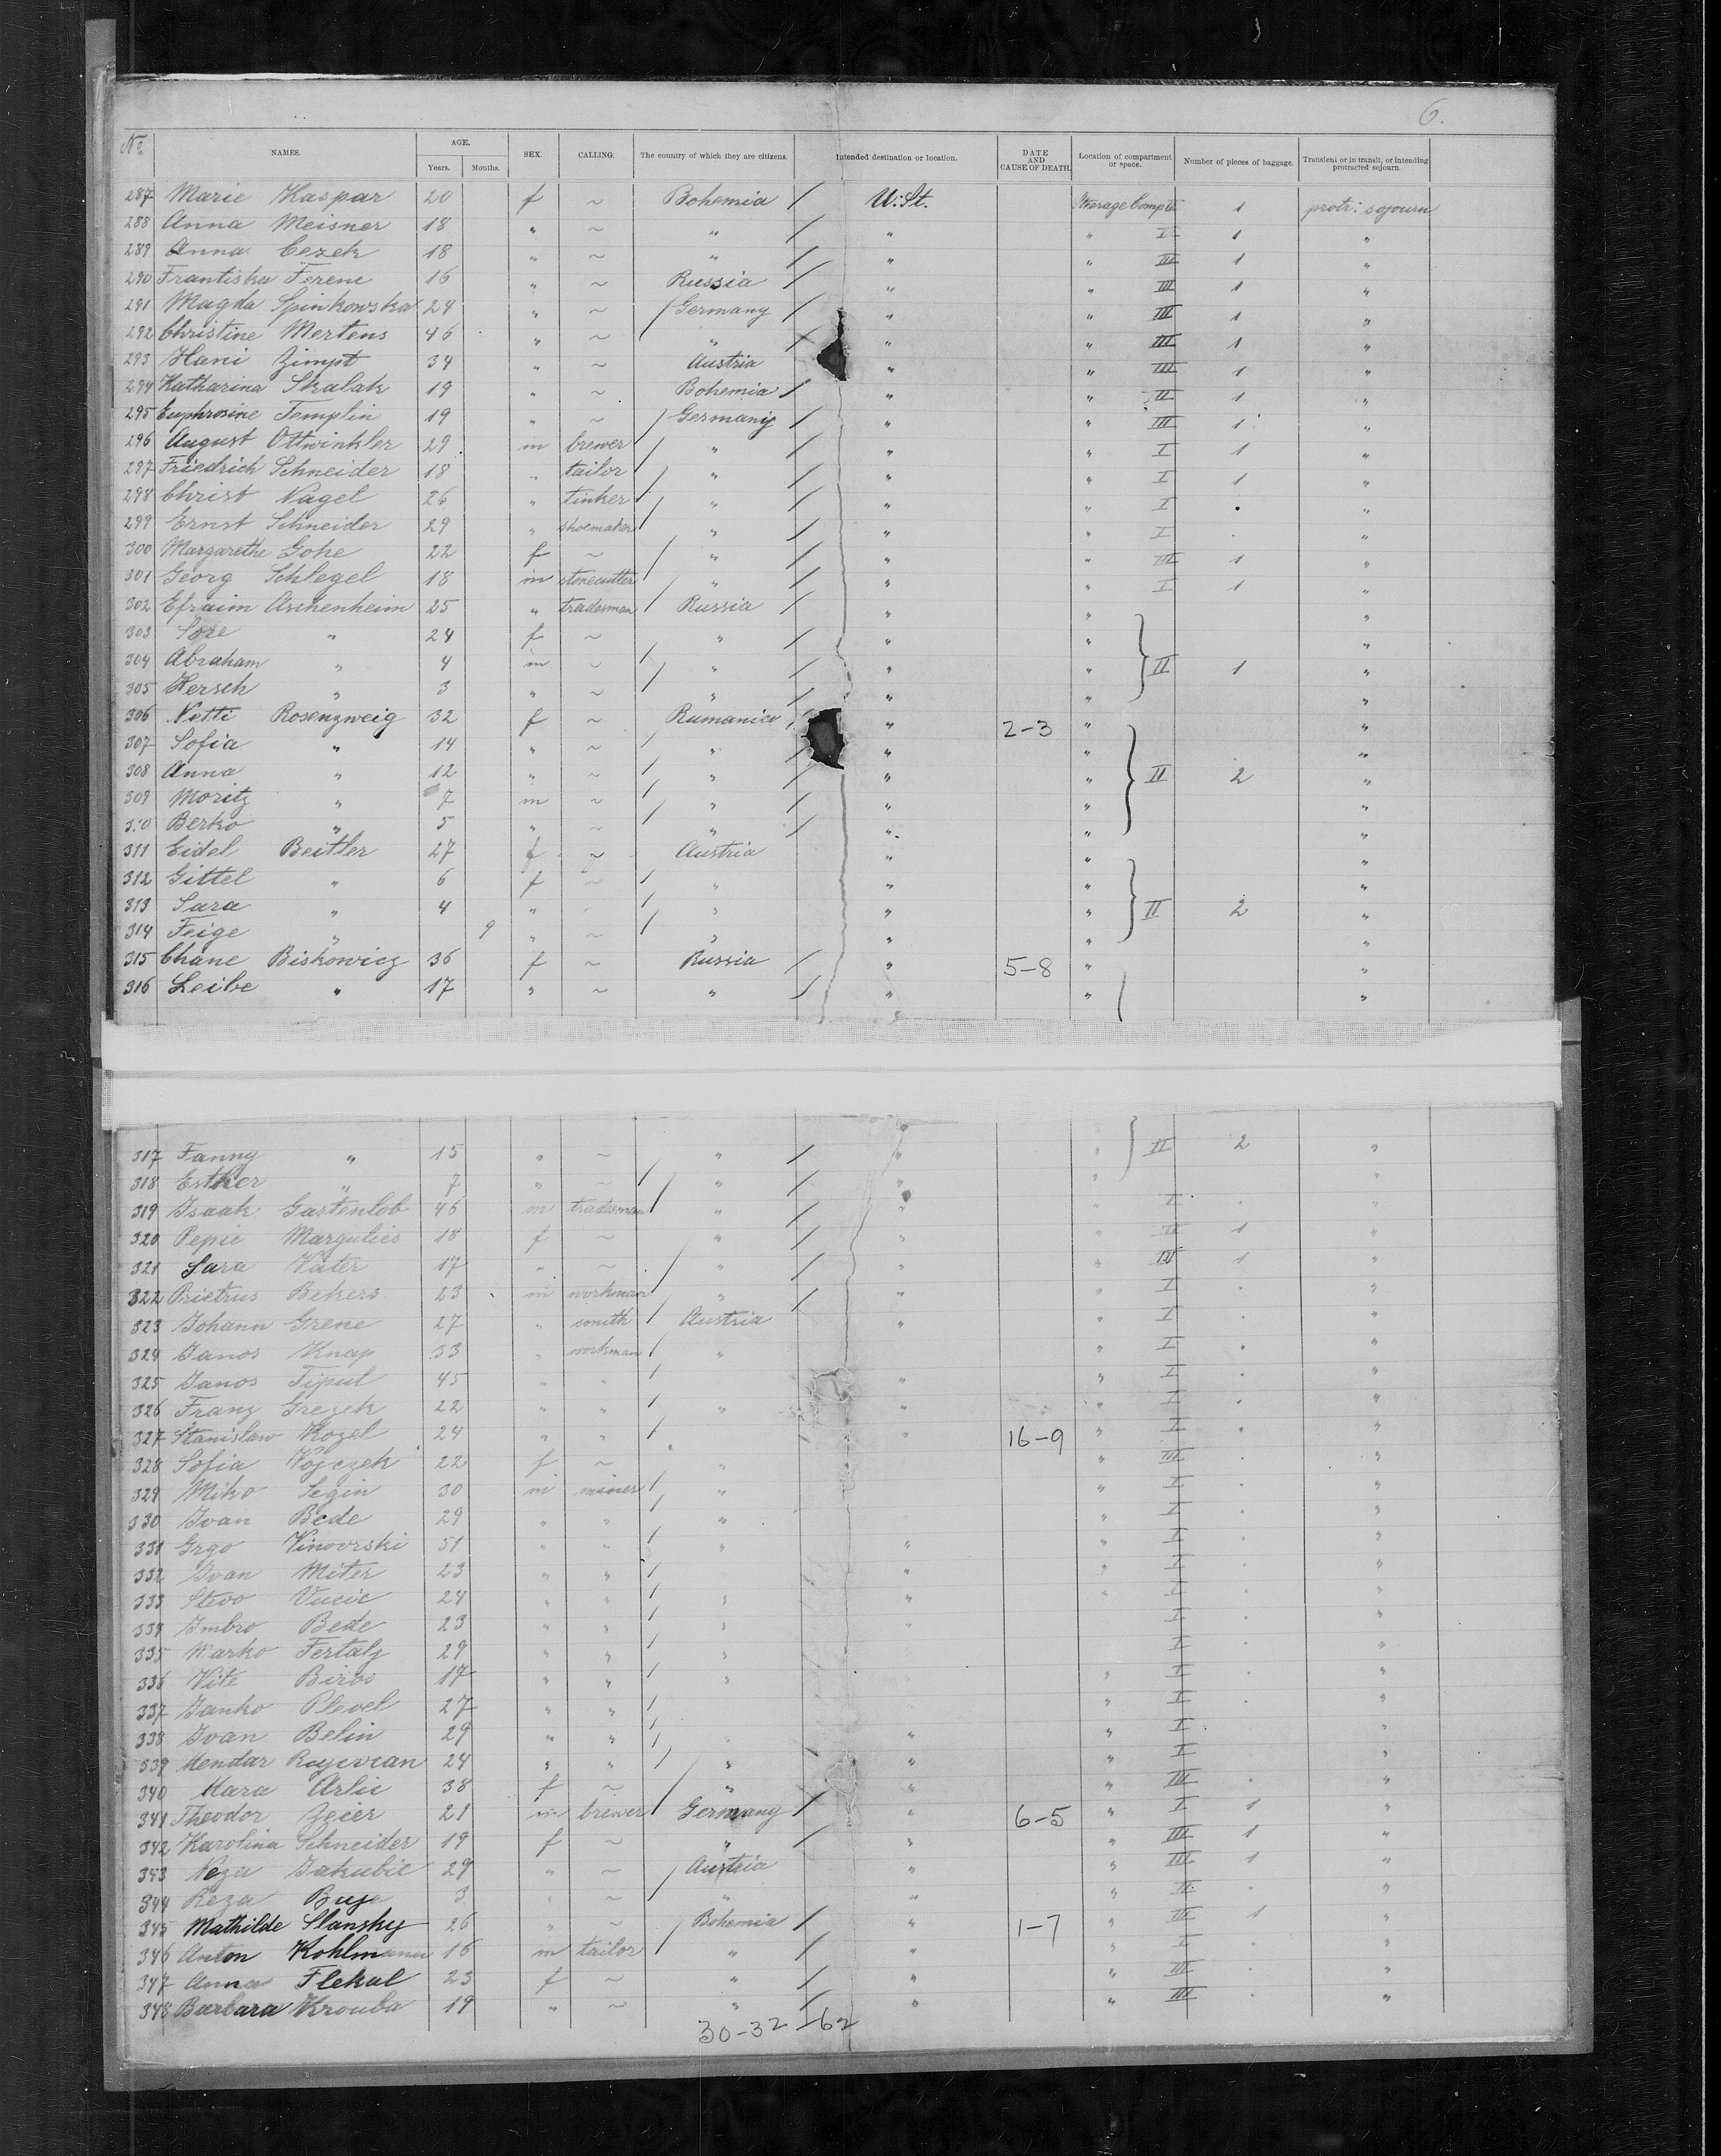 6.
No. NAMES. AGE. Years. Months. SEX. CALLING. The country of which they are citizens. Intended destination or location. DATE AND CAUSE OF DEATH. Location of compartment or space. Number of pieces of baggage. Transient or in transit, or intending protracted sojourn.
287 Marie Kaspar 20 f ~ Bohemia / U: St. Steerage Compt 1 protr: sojourn
288 Anna Meisner 18 " ~ " / " " I 1 "
289 Anna Cezek 18 " ~ " / " " III 1 "
290 Frantiska Ferenc 16 " ~ Russia / " " III 1 "
291 Magda Spinkowska 24 " ~ / Germany / " " III 1 "
292 Christine Mertens 46 " ~ " / " " III 1 "
293 Hani Zimpt 34 " ~ Austria " " III 1 "
294 Katharina Skalak 19 " ~ Bohemia / " " II 1 "
295 Euphrosine Templin 19 " ~ / Germany / " " III 1 "
296 August Ottwinkler 29 m brewer / " / " " I 1 "
297 Friedrich Schneider 18 " tailor / " / " " I 1 "
298 Christ Nagel 26 " tinker / " / " " I . "
299 Ernst Schneider 29 " shoemaker / " / " " I . "
300 Margarethe Gohe 22 f ~ / " / " " III 1 "
301 Georg Schlegel 18 m stonecutter / " / " " I 1 "
302 Efraim Aschenheim 25 " tradesman / Russia / " " "
303 Sore " 24 f ~ " / " " "
304 Abraham " 4 m ~ / " / " " II 1 "
305 Hersch " 3 " ~ / " / " " "
306 Netti Rosenzweig 32 f ~ Rumanien / " 2-3 " "
307 Sofia " 14 " ~ / " / " " "
308 Anna " 12 " ~ / " / " " II 2 "
309 Moritz " 7 m ~ / " / " " "
310 Berko " 5 " ~ / " / " " "
311 Eidel Beitler 27 f ~ Austria " " "
312 Gittel " 6 f ~ / " " " "
313 Sara " 4 " ~ / " " " II 2 "
314 Feige " 9 " ~ / " " " "
315 Chane Biskowicz 36 f ~ Russia / " 5-8 " "
316 Leibe " 17 " ~ " / " " "
317 Fanny " 15 " ~ " / " " II 2 "
318 Esther " 7 " ~ / " / " " "
319 Isaak Gartenlob 46 m tradesman / " / " " I . "
320 Pepie Margulies 18 f ~ " / " " III 1 "
321 Sara Vater 17 " ~ / " / " " III 1 "
322 Prietrus Bekers 23 m workman / " / " " I . "
323 Johann Grene 27 " smith / Austria " " I . "
324 Janos Knap 33 " workman / " " I . "
325 Janos Tiput 45 " " / " " I . "
326 Franz Grezek 22 " " / " " " I . "
327 Stanislaw Kozel 24 " " / " 16-9 " I . "
328 Sofia Vojczek 22 f ~ " " III . "
329 Miko Segin 30 m miner / " " I . "
330 Ivan Bede 29 " " / " " I . "
331 Grgo Vinovrski 51 " " / " " " I . "
332 Ivan Miter 23 " " / " " I . "
333 Stevo Vucic 24 " " / " " " I . "
334 Imbro Bede 23 " " / " " I . "
335 Marko Fertalj 29 " " / " I . "
336 Vite Biros 17 " " / " " I . "
337 Janko Plevel 27 " " / " I . "
338 Ivan Belin 29 " " / " " I . "
339 Mendar Rajevcan 24 " " / " " " I . "
340 Mara Arlic 38 f ~ / " " " III . "
341 Theodor Zeier 21 m brewer / Germany / " 6-5 " I 1 "
342 Karolina Schneider 19 f ~ " / " " III 1 "
343 Neza Jakubic 29 " ~ / Austria " " III 1 "
344 Reza Buje 3 " ~ " " " II . "
345 Mathilde Slansky 26 " ~ / Bohemia / " 1-7 " III 1 "
346 Anton Kohlmann 16 m tailor / " / " " I . "
347 Anna Flekal 23 f ~ " / " " III . "
348 Barbara Krouba 19 " ~ " / " " III . "
30-32 - 62